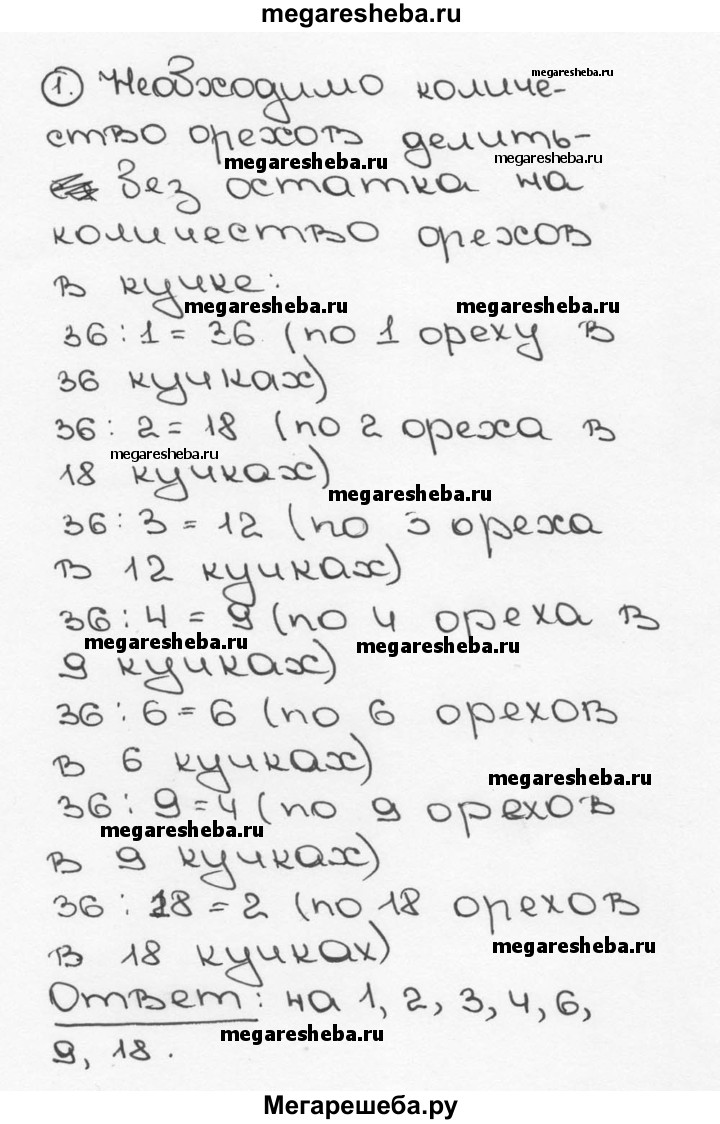 megaresheba.ru
1. Необходимо количе-
megaresheba.ru
ство орехов делить-
megaresheba.ru megaresheba.ru
без остатка на
количество орехов
в кучке:
megaresheba.ru megaresheba.ru
36 : 1 = 36 (по 1 ореху в
36 кучках)
36 : 2 = 18 (по 2 ореха в
megaresheba.ru
18 кучках)
megaresheba.ru
36 : 3 = 12 (по 3 ореха
в 12 кучках)
36 : 4 = 9 (по 4 ореха в
megaresheba.ru megaresheba.ru
9 кучках)
36 : 6 = 6 (по 6 орехов
в 6 кучках)
megaresheba.ru
36 : 9 = 4 (по 9 орехов
megaresheba.ru
в 9 кучках)
36 : 18 = 2 (по 18 орехов
в 18 кучках)
megaresheba.ru
Ответ: на 1, 2, 3, 4, 6,
megaresheba.ru
9, 18.
Мегарешеба.ру